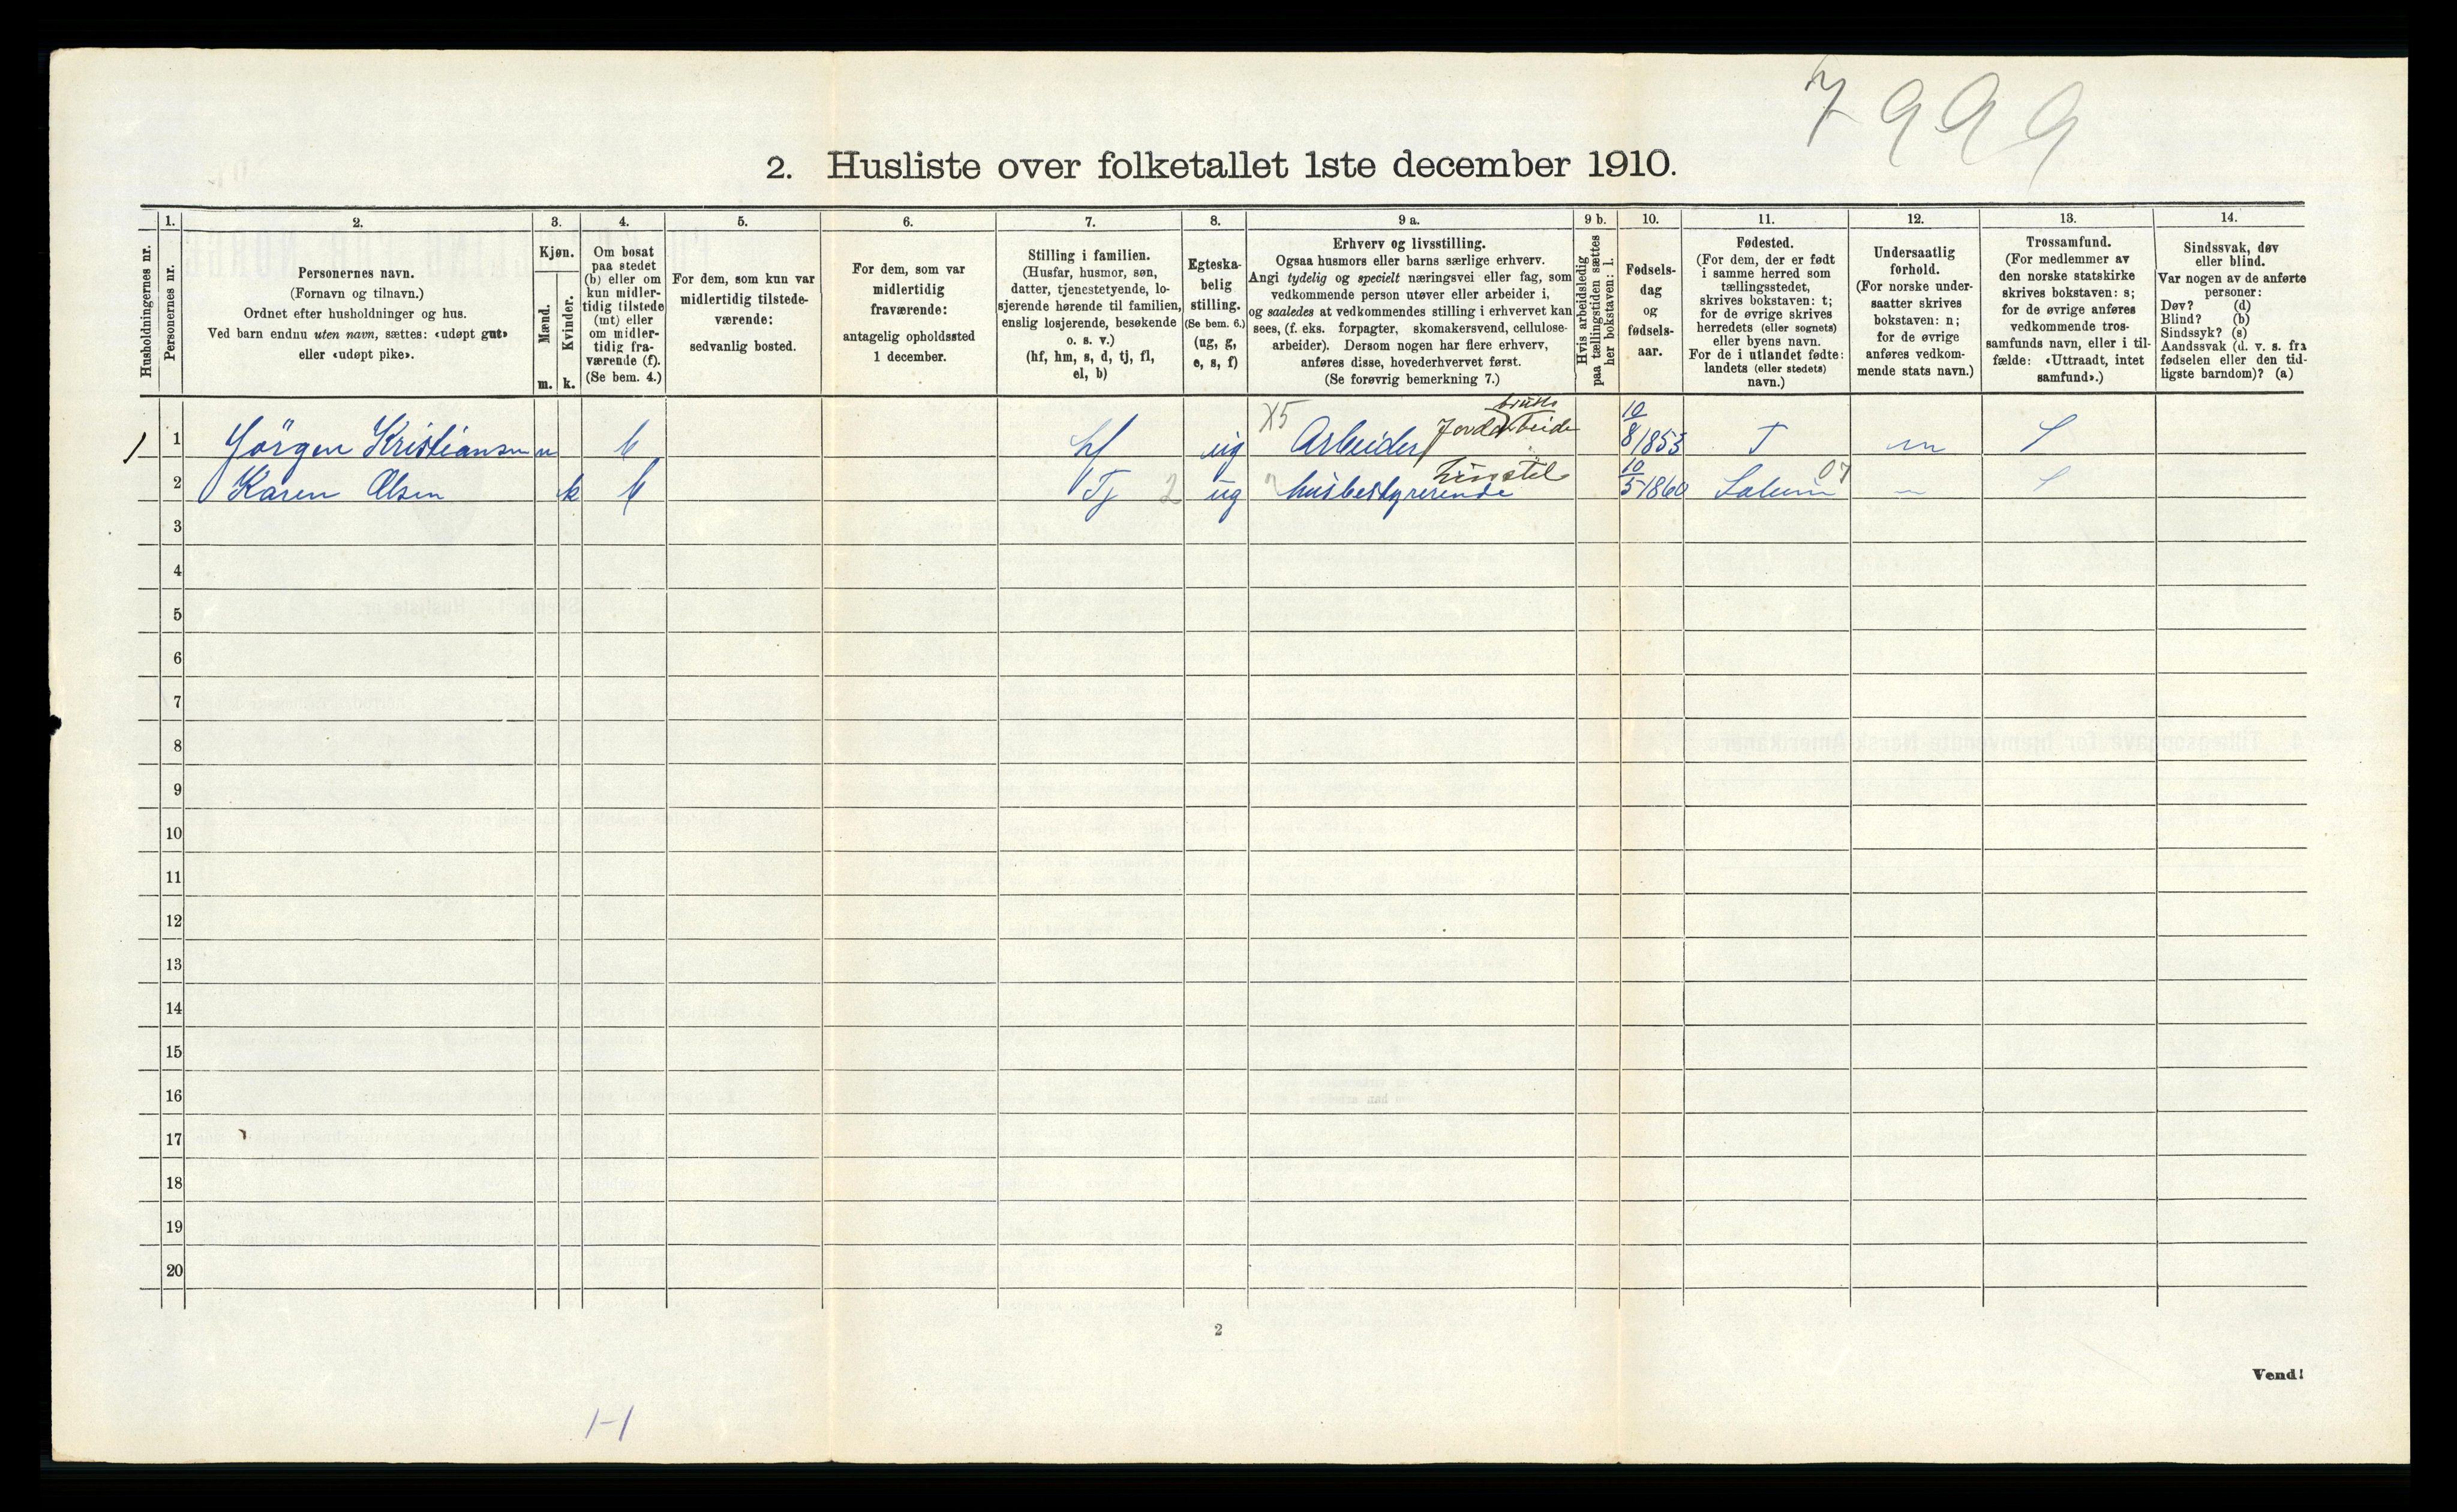 7999
2. Husliste over folketallet 1ste december 1910.
Husholdningernes nr.
1.
Personernes nr.
2.
Personernes navn.
(Fornavn og tilnavn.)
Ordnet efter husholdninger og hus.
Ved barn endnu uten navn, sættes: «udøpt gut»
eller «udøpt pike».
3.
Kjøn.
Mænd.
Kvinder.
m. k.
4.
Om bosat
paa stedet
(b) eller om
kun midler-
tidig tilstede
(mt) eller
om midler-
tidig fra-
værende (f).
(Se bem. 4.)
5.
For dem, som kun var
midlertidig tilstede-
værende:
sedvanlig bosted.
6.
For dem, som var
midlertidig
fraværende:
antagelig opholdssted
1 december.
7.
Stilling i familien.
(Husfar, husmor, søn,
datter, tjenestetyende, lo-
sjerende hørende til familien,
enslig losjerende, besøkende
o. s. v.)
(hf, hm, s, d, tj, fl,
el, b)
8.
Egteska-
belig
stilling.
(Se bem. 6.)
(ug, g,
e, s, f)
9 a.
Erhverv og livsstilling.
Ogsaa husmors eller barns særlige erhverv.
Angi tydelig og specielt næringsvei eller fag, som
vedkommende person utøver eller arbeider i,
og saaledes at vedkommendes stilling i erhvervet kan
sees, (f. eks. forpagter, skomakersvend, cellulose-
arbeider). Dersom nogen har flere erhverv,
anføres disse, hovederhvervet først.
(Se forøvrig bemerkning 7.)
9 b.
Hvis arbeidsledig
paa tællingstiden sættes
her bokstaven: l.
10.
Fødsels-
dag
og
fødsels-
aar.
11.
Fødested.
(For dem, der er født
i samme herred som
tællingsstedet,
skrives bokstaven: t;
for de øvrige skrives
herredets (eller sognets)
eller byens navn.
For de i utlandet fødte:
landets (eller stedets)
navn.)
12.
Undersaatlig
forhold.
(For norske under-
saatter skrives
bokstaven: n;
for de øvrige
anføres vedkom-
mende stats navn.)
13.
Trossamfund.
(For medlemmer av
den norske statskirke
skrives bokstaven: s;
for de øvrige anføres
vedkommende tros-
samfunds navn, eller i til-
fælde: «Uttraadt, intet
samfund».)
14.
Sindssvak, døv
eller blind.
Var nogen av de anførte
personer:
Døv? (d)
Blind? (b)
Sindssyk? (s)
Aandssvak (d. v. s. fra
fødselen eller den tid-
ligste barndom)? (a)
1 1 Jörgen Kristiansen m b hf ug X5 Arbeider Jordarbeide bruks 10/8 1853 T n S
2 Karen Olsen k b Tj 2 ug husbestyrerende husstel 10/5 1860 Solum 07 - S
3
4
5
6
7
8
9
10
11
12
13
14
15
16
17
18
19
20
2
Vend!
1-1